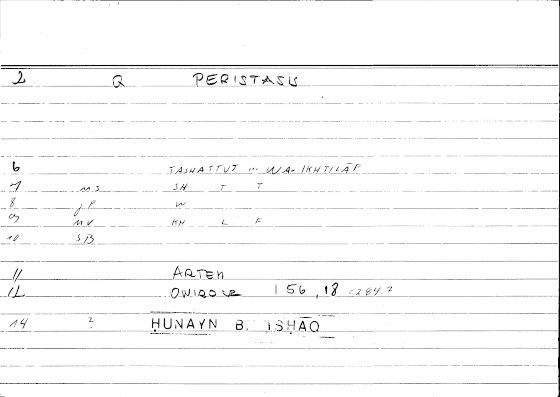 2 Q PERISTASIS
6 TASHATTUT ... WA-IKHTILĀF
7 MS SH T T
8 JP W
9 MV KH L F
10 SB
11 ARTEM
12 156, 18 = 284.2
14 ? ḤUNAYN B. ISḤĀQ